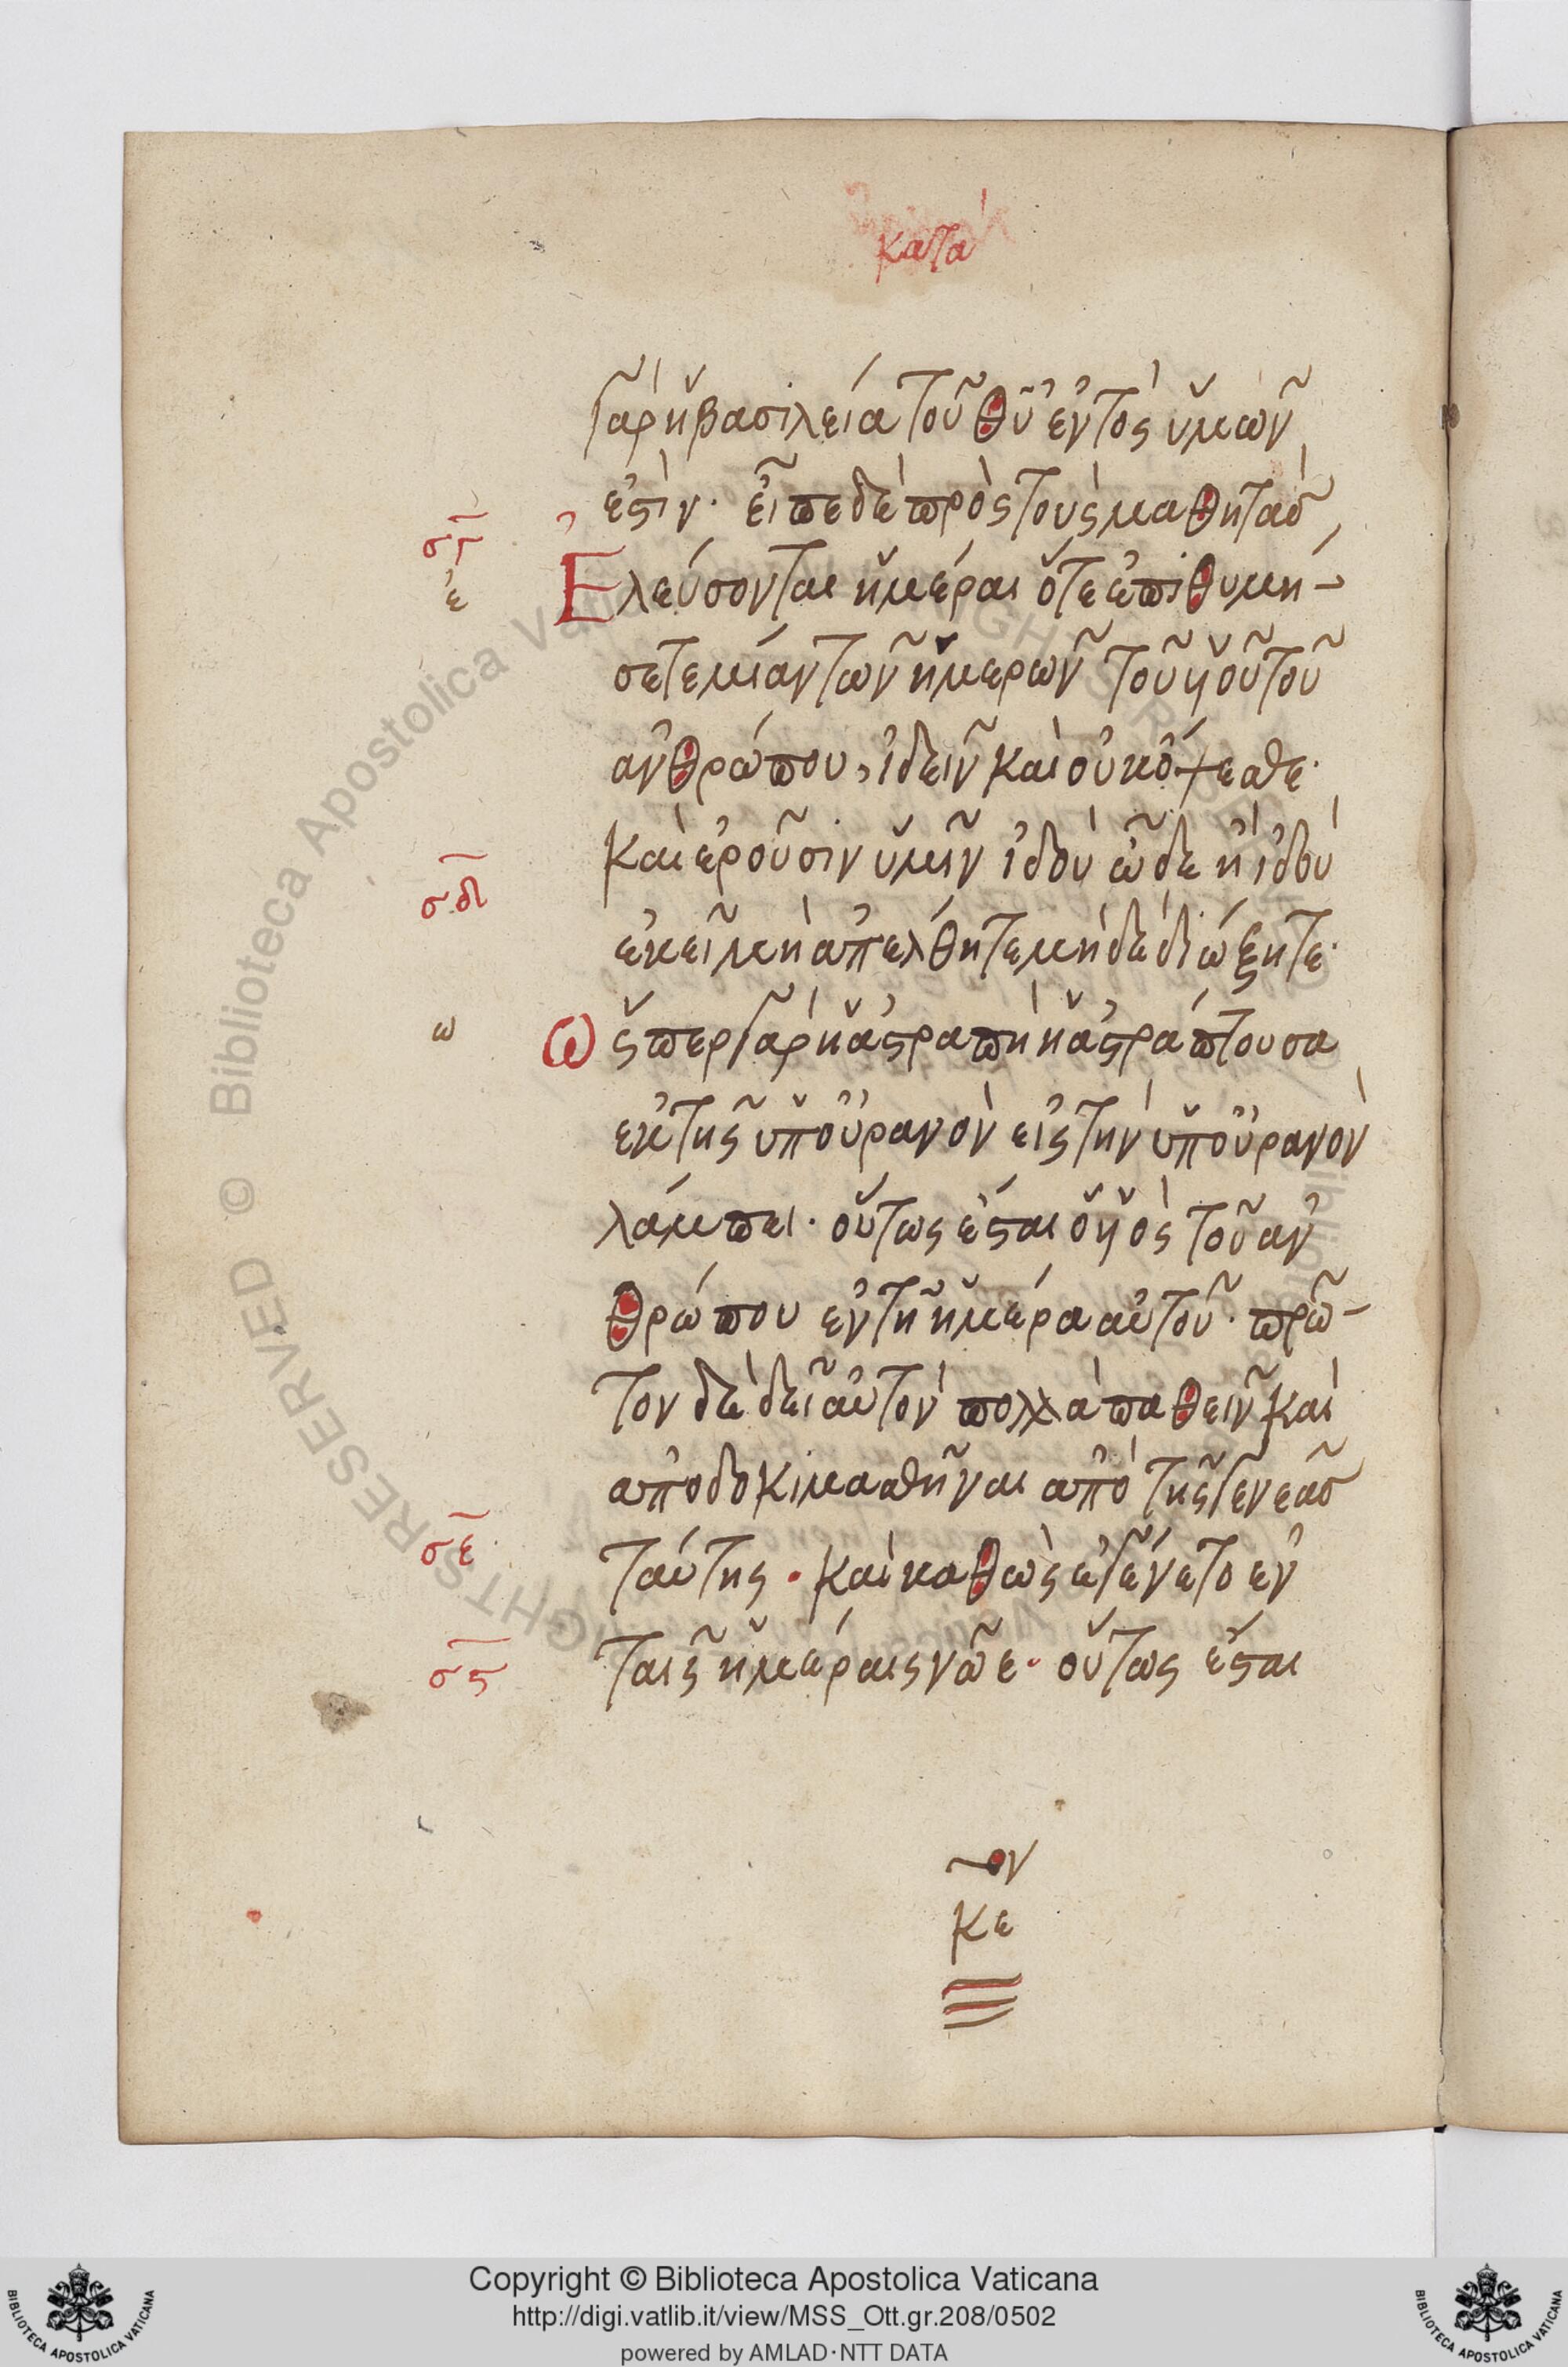 κατα
γὰρ ἡ βασιλεία τοῦ θῦ ἐντὸς ὑμῶν
ἐστιν. εἶπε δὲ πρὸς τοὺς μαθητάσ
σγ
Ἐλεύσονται ἡμέραι ὅτε ἐπιθυμή-
ε
σετε μίαν τῶν ἡμερῶν τοῦ υἱοῦ τοῦ
ἀνθρώπου, ἰδεῖν καὶ οὐκ ὄψεσθε.
καὶ ἐροῦσιν ὑμῖν ἰδοὺ ὧδε ἢ ἰδοὺ
σδ
ἐκεῖ μὴ ἀπέλθητε μὴ δὲ διώξητε.
ω
Ὥσπερ γὰρ ἡ ἀστραπὴ ἡ ἀστράπτουσα
ἐκ τῆς ὑπ οὐρανὸν εἰς τὴν ὑπ οὐρανὸν
λάμπει. οὕτως ἔσται ὁ υἱὸς τοῦ ἀν
θρώπου ἐν τῇ ἡμέρα αὐτοῦ. πρῶ-
τον δὲ δεῖ αὐτὸν πολλὰ παθεῖν καὶ
ἀποδοκιμασθῆναι ἀπὸ τῆς γενεᾶσ
ταύτης. καὶ καθὼς ἐγένετο ἐν
σε
ταῖς ἡμέραις νῶε. οὕτως ἔσται
σϛ
ον
κε
Copyright © Biblioteca Apostolica Vaticana
http://digi.vatlib.it/view/MSS_Ott.gr.208/0502
powered by AMLAD·NTT DATA